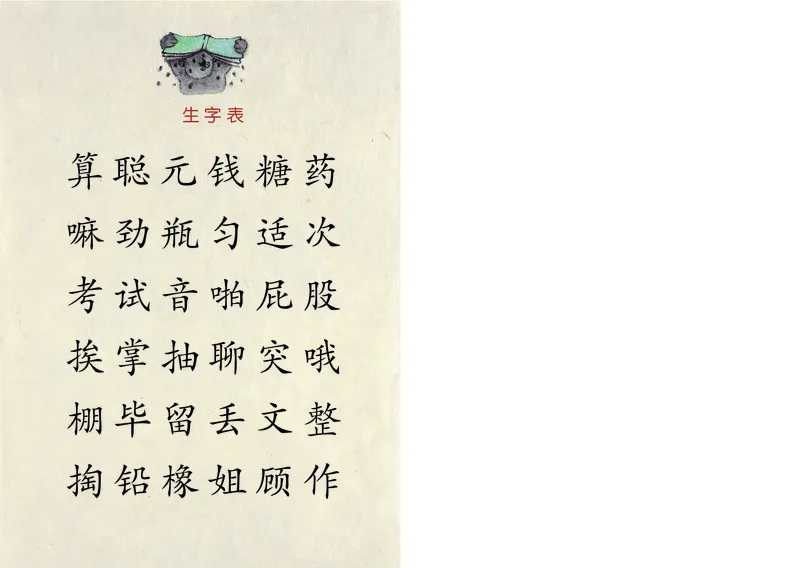 生字表
算聪元钱糖药
嘛劲瓶匀适次
考试音啪屁股
挨掌抽聊突哦
棚毕留丢文整
掏铅橡姐顾作